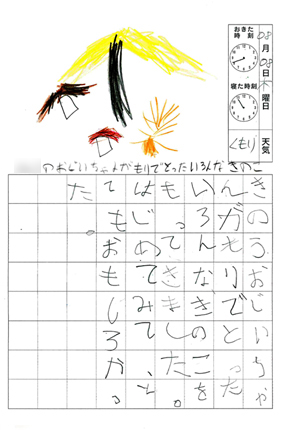 おきた
時刻
08月08日木曜日
寝た時刻
天気
くもり
のおじいちゃんがもりでとったいろんなきのこ
きのうおじいちゃ
んがもりでとった
いろんなきのこを
もってきました。
はじめてみて、と
てもおもしろかっ
た。